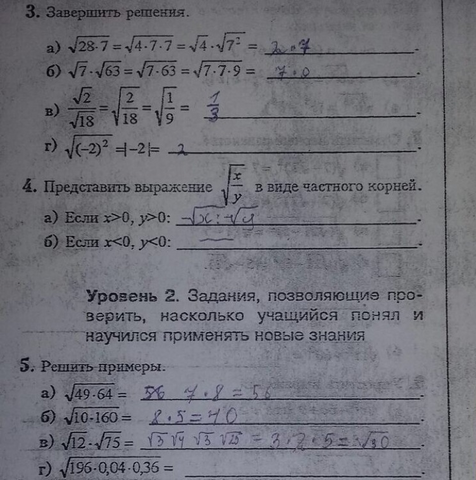 3. Завершить решения.
а) √28·7 = √4·7·7 = √4 · √7² = 2·7.
б) √7 · √63 = √7·63 = √7·7·9 = 7·
в) √2/√18 = √(2/18) = √(1/9) = 1/3.
г) √(−2)² = |−2| = 2.
4. Представить выражение √(x/y) в виде частного корней.
а) Если x>0, y>0: √x : √y.
б) Если x<0, y<0: —.
Уровень 2. Задания, позволяющие про-
верить, насколько учащийся понял и
научился применять новые знания
5. Решить примеры.
а) √49·64 = 56 7·8=56
б) √10·160 = 8·5=40
в) √12 · √75 = √3 √4 √3 √25 = 3·2·5=√30
г) √196·0,04·0,36 =